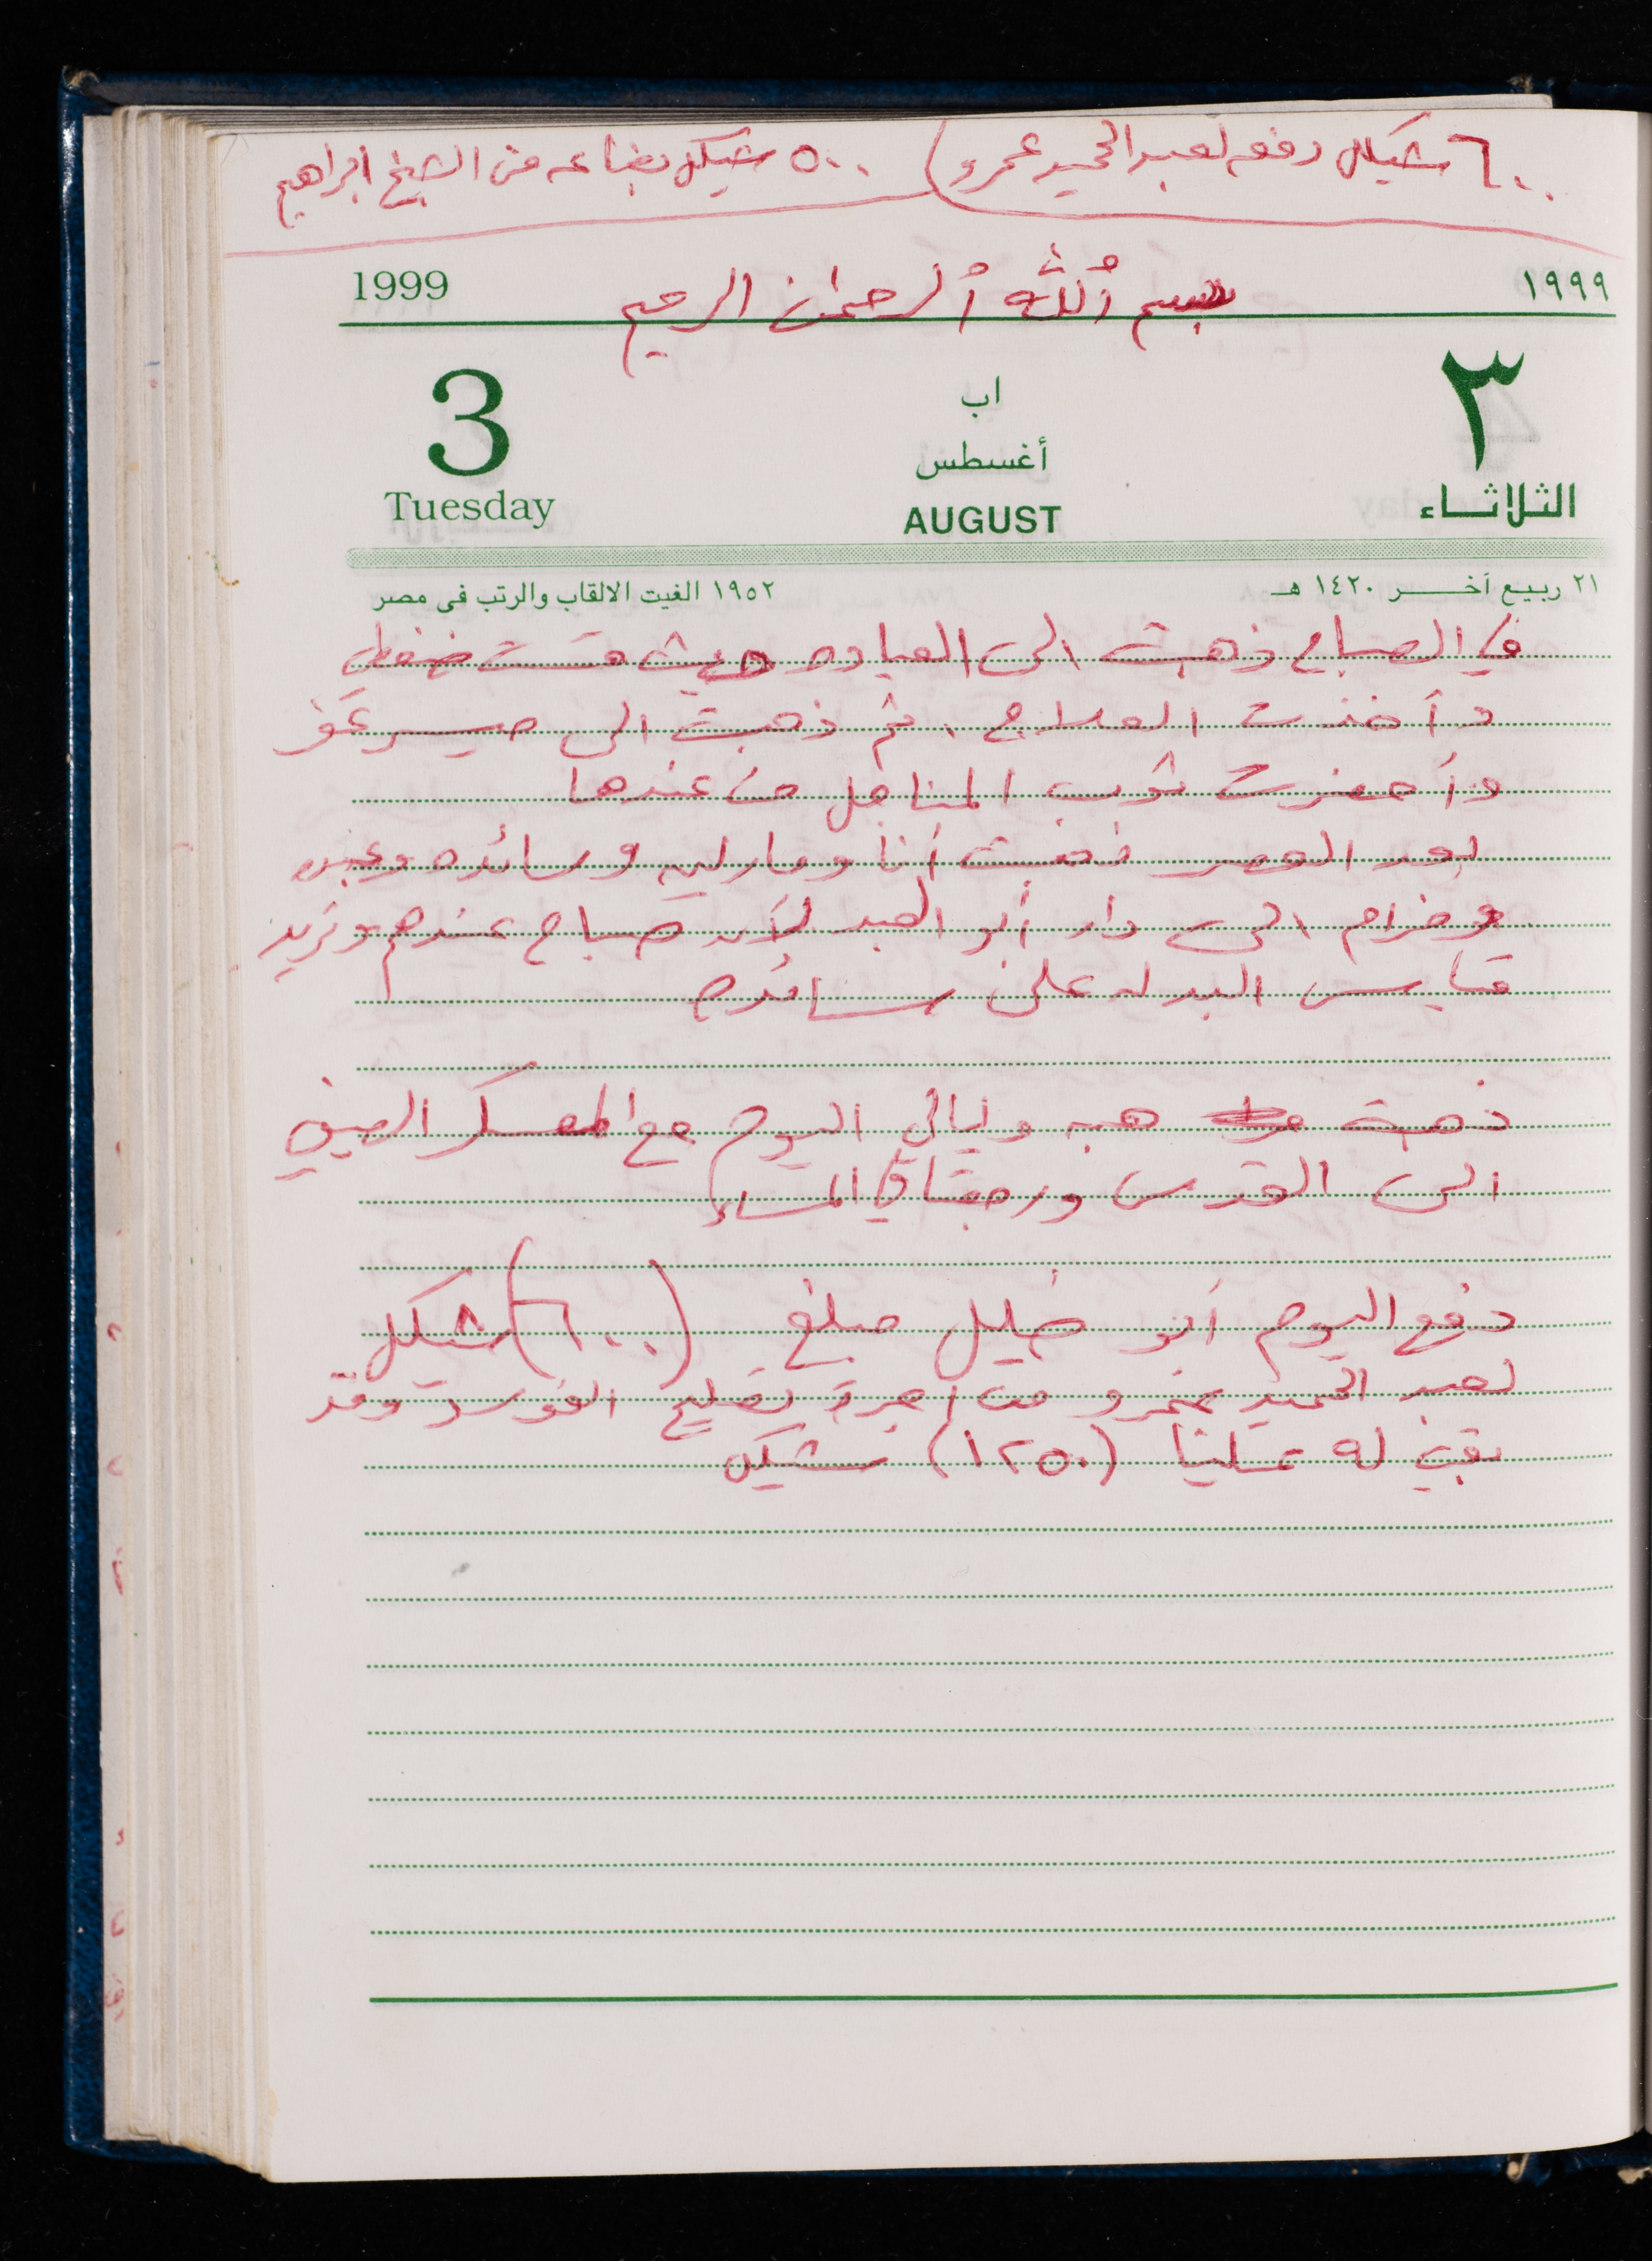 ٦٠٠ شيكل دفعه لعبد الحميد عمرو ) ٥٠٠ شيكل بضاعه من الشيخ ابراهيم
1999 بسم الله الرحمن الرحيم ١٩٩٩
3 اب ٣
أغسطس
Tuesday AUGUST الثلاثاء
٢١ ربيع آخر ١٤٢٠ هـ ١٩٥٢ الغيت الالقاب والرتب فى مصر
في الصباح ذهبت الى العياده حيث قست ضغطي
وأخذت العلاج ، ثم ذهبت الى
وأحضرت ثوب المناجل من عندها
بعد العصر ذهبت أنا و ورسائده
وخزام الى دار أبو العبد لأن صباح عندهم ونريد
قياس البدله على
ذهبت هبه وليالي اليوم مع المعسكر الصيفي
الى القدس ورجعتا في المساء
دفع اليوم أبو خليل مبلغ (٦٠٠) شيكل
لعبد الحميد عمرو من اجرة تصليح الفورد وقد
بقي له علينا (١٢٥٠) شيكل